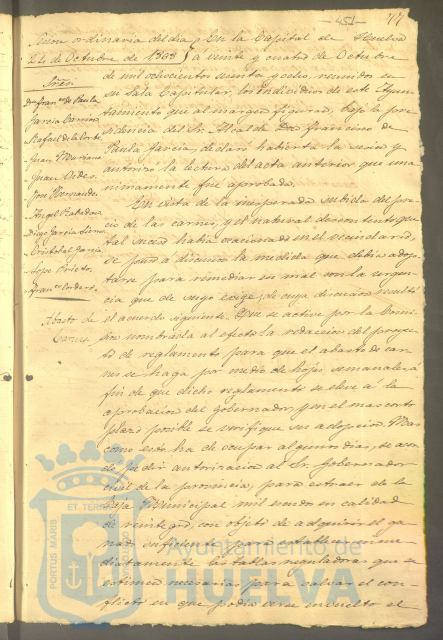 -451-
77
Sesion ordinaria del dia
24 de Octubre de 1868
Sres.
Dn. Franco. de Paula
Garcia Carrion
Rafael de la Corte
Juan Mariano
Juan Oides
Jose Hernandez
Angel Rabadan
Diego Garcia Sierra
Cristobal Garcia
Lope Prieto
Franco. Cordero
Abasto de
Carnes
En la Capital de Huelva
á veinte y cuatro de Octubre
de mil ochocientos sesenta y ocho, reunidos en
su Sala Capitular, los individuos de este Ayun
tamiento que al margen figuran, bajo la pre
sidencia del Sr. Alcalde Don Francisco de
Paula Garcia, declaró habierta la sesion y
autorizó la lectura del acta anterior que una
nimamente fué aprobada.
En vista de la inesperada subida del pre
cio de las carnes, y el natural descontento que
tal suceso habia ocasionado en el vecindario,
se puso á discusion la medida que debia adop
tarse para remediar un mal con la urgen
cia que de suyo exige; de cuya discusion resultó
el acuerdo siguiente. Que se active por la Comi
sion nombrada al efecto la redaccion del proyec
to de reglamento para que el abasto de car
nes se haga por medio de hojas semanales á
fin de que dicho reglamento se eleve á la
aprobacion del Gobernador, y en el mas corto
plazo posible se verifique su adopcion. Mas
como esto ha de ocupar algunos dias, se acor
dó pedir autorizacion al Sr. Gobernador
civil de la provincia, para estraer de la
caja Municipal mil escudos en calidad
de reintegro, con objeto de adquirir el ga
nado suficiente para establecer inme
diatamente las tablas reguladoras que se
estimen necesarias para salvar el con
flicto en que podia verse envuelto el
PORTUS MARIS
ET TERRAE
Ayuntamiento de
HUELVA